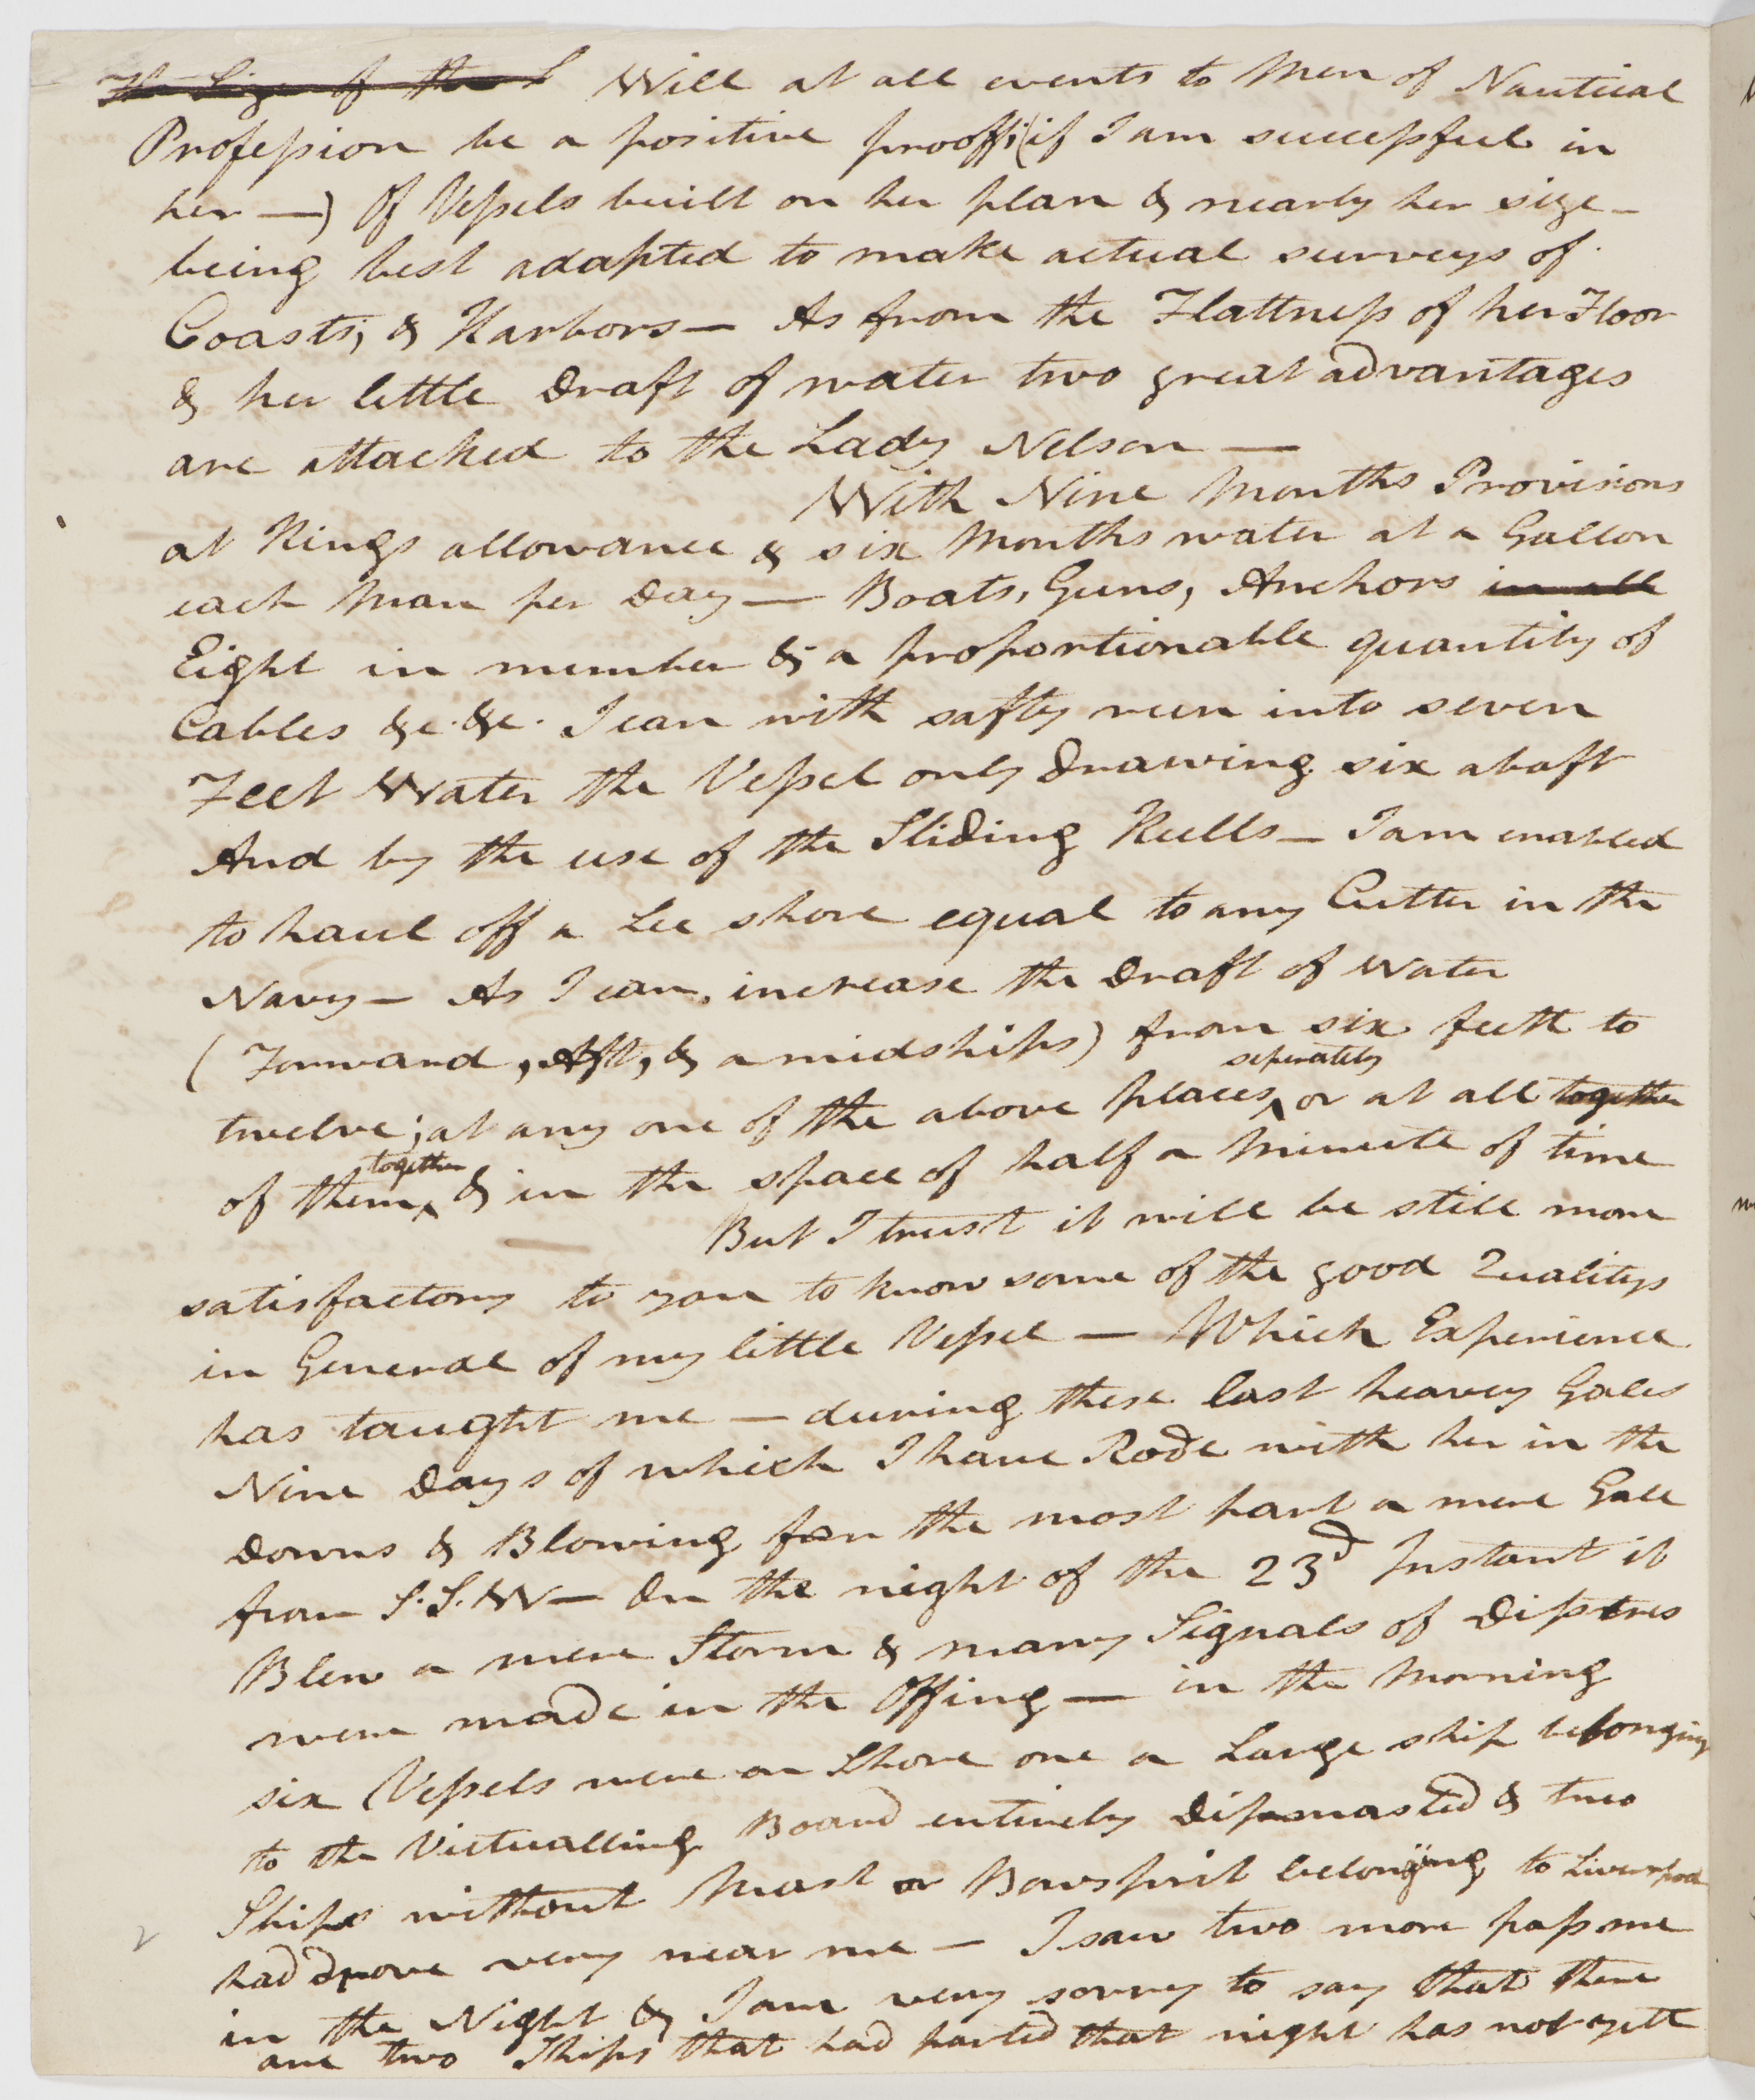 The Size of the L Will at all events to Men of Nautical
Profession be a positive prooff; (if I am successfull in
her —) Of Vessels built on her plan & nearly her size —
being best adapted to make actual surveys of
Coasts, & Harbors — As from the Flattness of her Floor
& her little Draft of water two great advantages
are attached to the Lady Nelson —
With Nine Months Provisions
at Kings allowance & six Months water at a Gallon
each Man per Day — Boats, Guns, Anchors in all
Eight in number & a proportionable quantity of
Cables &c. &c. I can with safty run into seven
Feet Water the Vessel only Drawing six abaft
And by the use of the Sliding Keells — I am enabled
to haul off a Lee shore equal to any Cutter in the
Navy — As I can, increase the Draft of Water
(Forward, Aft, & amidships) from six feett to
seperately
twelve; at any one of the above places, or at all together
together
of them, & in the space of half a Minute of time
But I trust it will be still more
satisfactory to you to know some of the good Qualitys
in General of my little Vessel — Which Experience
has taught me — during these last heavey Gales
Nine Days of which I have Rode with her in the
Downs & Blowing for the most part a mere Gale
from S.S.W — On the night of the 23d Instant it
Blew a mere Storm & many Signals of Disstres
were made in the Offing — in the Morning
six Vessels were on Shore one a Large ship belonging
to the Victualling Board entirely Dissmasted & two
Ships without Mast or Bowsprit belonging to Liverpool
had drove very near me — I saw two more pass me
in the Night & I am very sorry to say that there
are two Ships that had parted that night has not yett